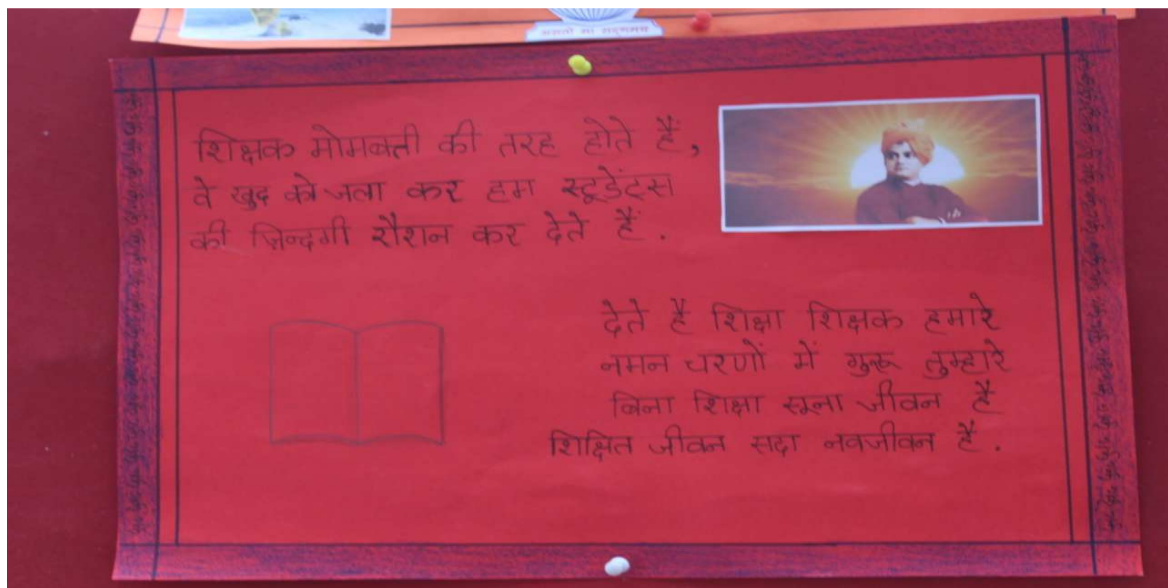 शिक्षक मोमबत्ती की तरह होते हैं,
वे खुद को जला कर हम स्टूडेंट्स
की ज़िन्दगी रौशन कर देते हैं.
देते हैं शिक्षा शिक्षक हमारे
नमन चरणों में गुरू तुम्हारे
बिना शिक्षा सूना जीवन है
शिक्षित जीवन सदा नवजीवन है.